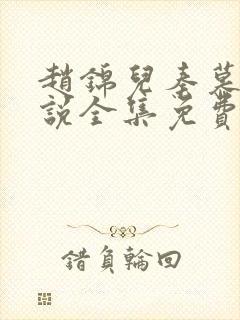 趙錦兒秦慕
說全集免費
錯負輪回